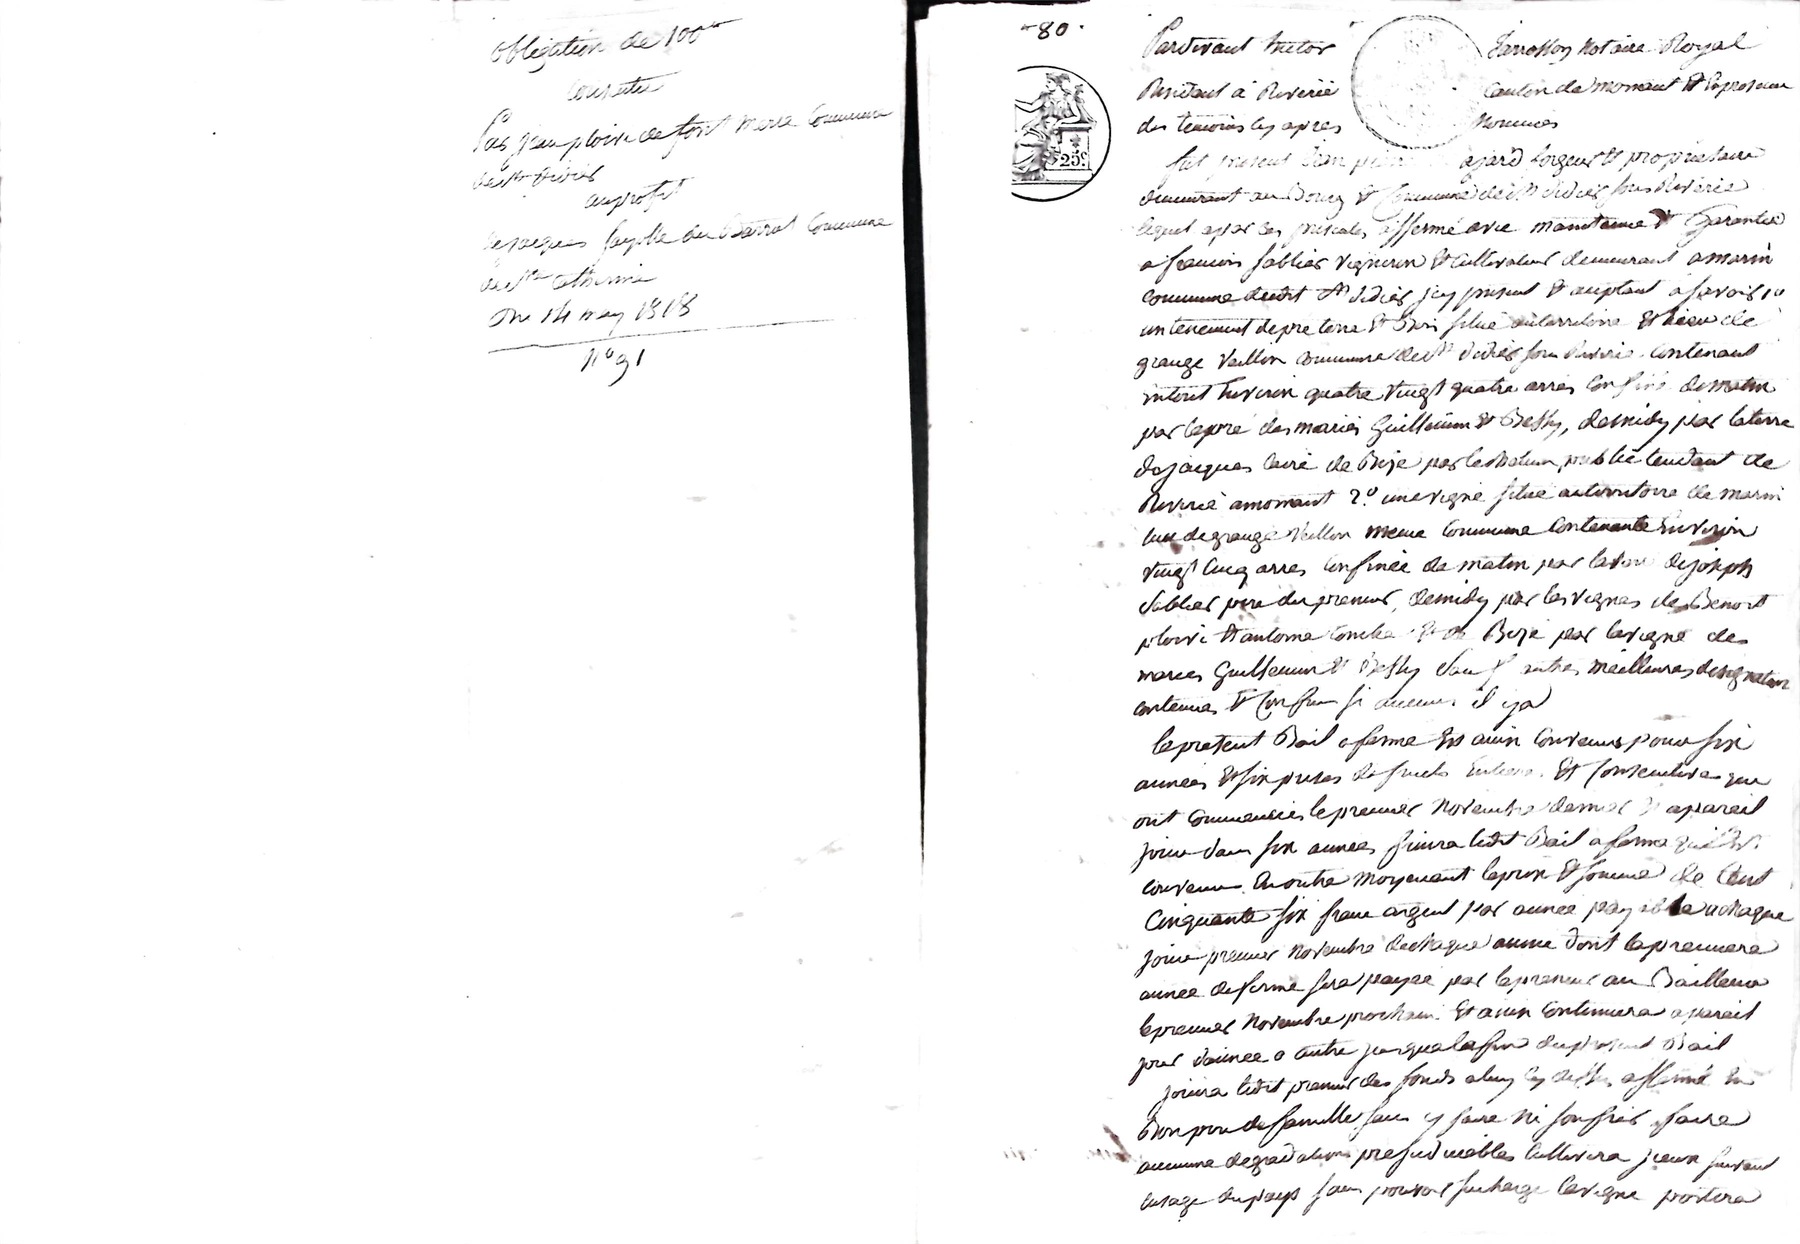 obligation de 100
consentie
Par jean ploivi de font merle Commune
de St didier
au profit
de jacques fayolle du Barrot Commune
de Ste Catherine
Du 14 may 1818
N° 91
80
25c
Pardevant hector Notaire Royal
Residant à Riverié Canton de mornant Et En presence
des temoins cy apres Nommes
fut present Jean forgeur Et propriétaire
demeurant au Bourg Et Commune de St didier sous Riverie
lequel apar ces presentes affermé avec maintenue Et Garentie
a francois sablier vigneron Et Cultivateur demeurant a marin
Commune dudit St didier jcy present Et aceptant a savoir 1°
un tenement de pre terre Et situé au territoire Et lieu de
grange Veillon Commune de St didier sous Riverie Contenant
intout Environ quatre vingt quatre arres Confiné de matin
par le pré des mariés Guilleumin Et Bessy, de midy par la terre
de jacques de Bise par le chemin public tendant de
Riverie a mornant 2° une vigne situé au territoire de marin
lieu de grange Veillon meme Commune Contenante Environ
vingt Cinq arres Confinée de matin par la de joseph
Sablier pere du preneur, de midy par les vignes de Benoit
ploivi Et antoine Et de Bise par la vigne des
maries Guilleumin Et Bessy Sauf autres meilleures designations
contenues Et Confins si aucuns il y a
le present Bail a ferme Est ainsi Convenus pour six
années Et six prises de fruits Entieres Et Consecutives qui
ont Commencées le premier Novembre dernier Et a pareil
jour dans six années finira ledit Bail a ferme qui Est
Convenu En outre moyenant le prix Et somme de Cent
Cinquante six franc argent par année payable a chaque
jour premier Novembre de chaque année dont la premiere
année de ferme sera payée par le preneur au Bailleur
le premier Novembre prochain Et ainsi Continuera a pareil
jour d'année a autre jusqua la fin du present Bail
jouira ledit preneur des fonds a luy cy dessus affermé En
Bon pere de famille sans y faire Ni souffrir faire
aucune degradations prejudiciables Cultivera jceux suivant
lusage du pays sans pouvoir surcharge la vigne portera